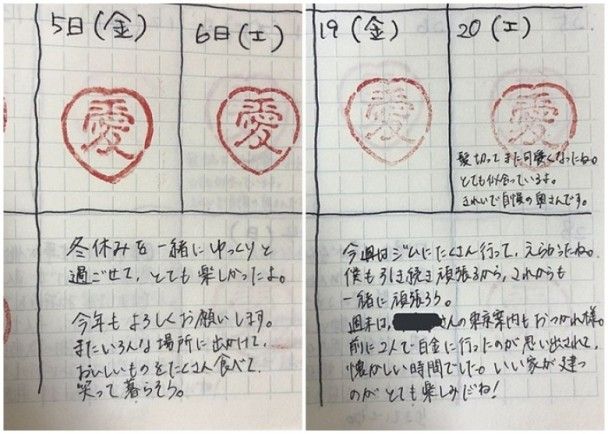 5日(金)
6日(土)
愛
愛
冬休みを一緒にゆっくりと
過ごせて、とても楽しかったよ。
今年もよろしくお願いします。
またいろんな場所に出かけて、
おいしいものをたくさん食べて
笑って暮らそう。
19(金)
20(土)
愛
愛
髪切ってまた可愛くなったね。
とても似合っているよ。
きれいで自慢の奥さんです。
今週はジムにたくさん行って、えらかったね。
僕も引き続き頑張るから、これからも
一緒に頑張ろう。
週末は、さんの東京案内もおつかれ様。
前に2人で白金に行ったのが思い出されて、
懐かしい時間でした。いい家が建つ
のがとても楽しみだね!